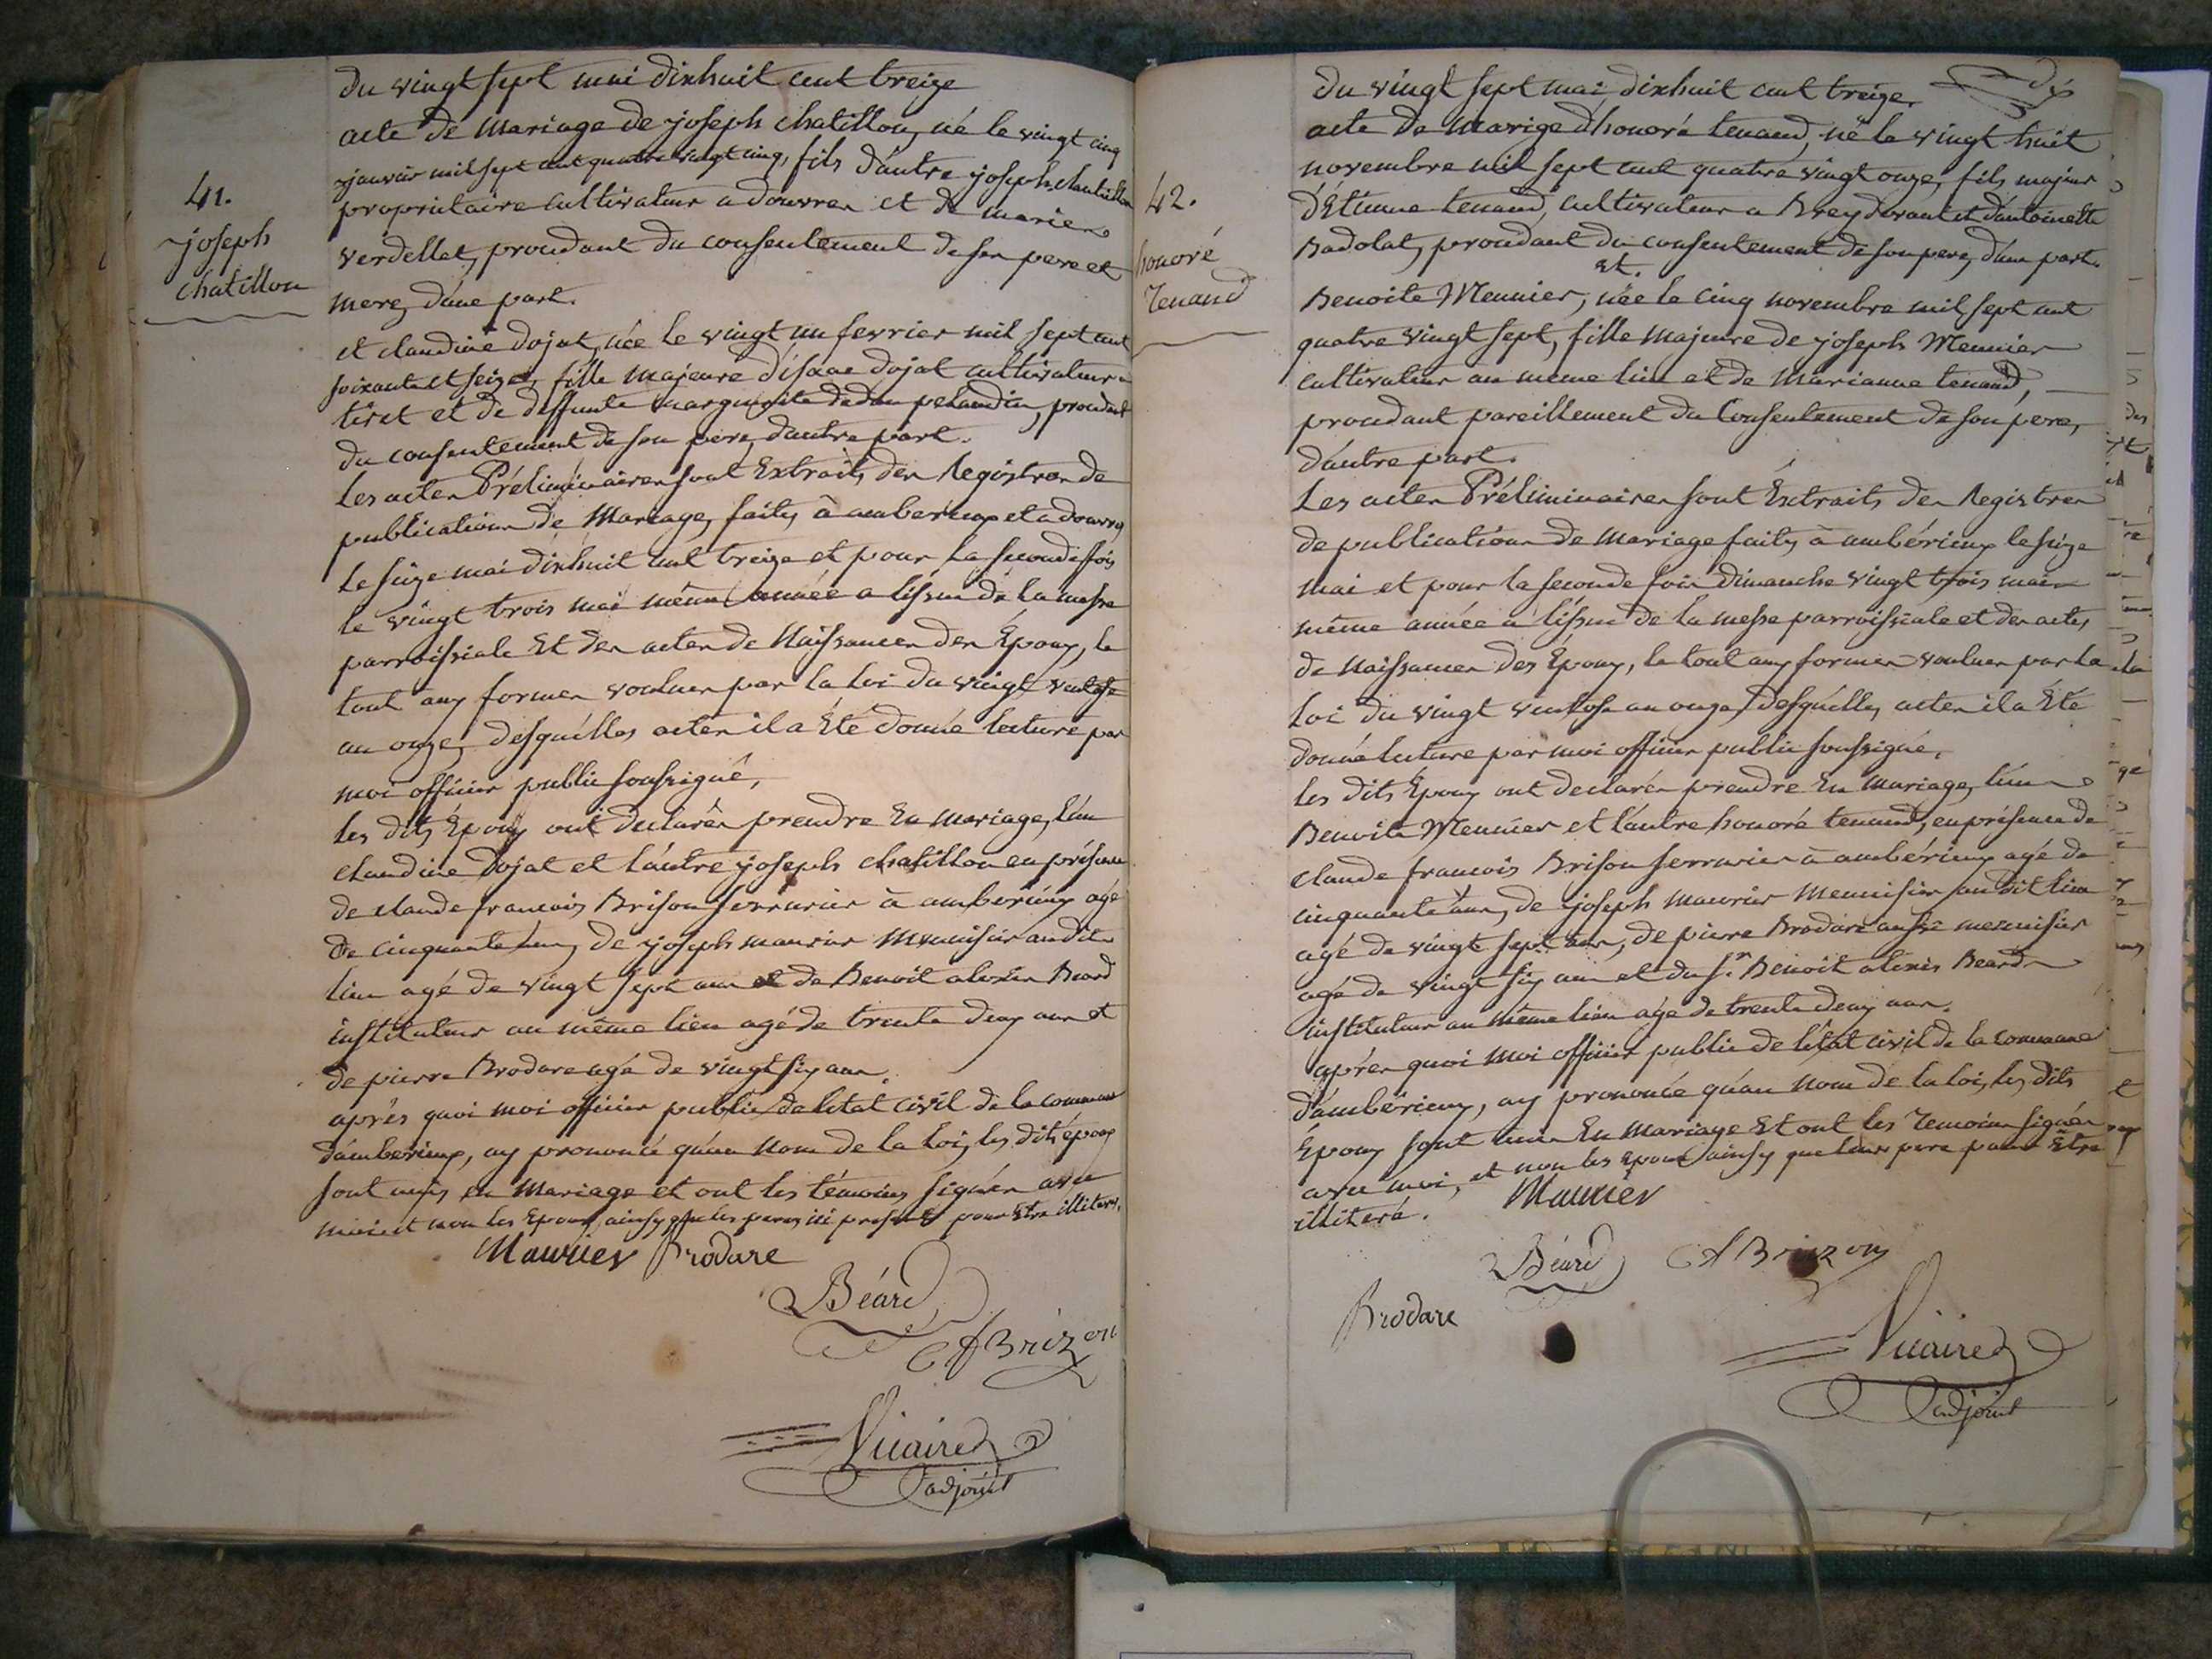 41.
joseph
chatillon
du vingt sept mai dixhuit cent treize
acte de Mariage de joseph chatillon, né le vingt cinq
janvier mil sept cent quatre vingt cinq, fils d'autre joseph chatillon
propriétaire cultivateur a douvres et de marie
verdellet, procedant du consentement de son pere et
mere, d'une part.
et claudine dojat, née le vingt un fevrier mil sept cent
soixante et seize, fille majeure d'isaac dojat cultivateur a
tiret et de deffunte marguerite, procedant
du consentement de son pere, d'autre part.
Les actes Préliminaires sont Extraits des Registres de
publication de Mariage, faits à ambérieux et a douvres
le seize mai dixhuit cent treize et pour la seconde fois
le vingt trois mai même année a l'issue de la messe
parroissiale Et des actes de Naissances des Époux, le
tout aux formes voulues par la loi du vingt ventose
an onze, desquelles actes il a Été donné lecture par
moi officier public soussigné,
les dits Époux ont declarés prendre En mariage, l'un
claudine dojat et l'autre joseph chatillon en présence
de claude francois Brison serrurier à amberieux agé
de cinquante ans, de joseph maurier Menuisier au dit
lieu agé de vingt sept ans et de Benoit alexis Beard
instituteur au même lieu agé de trente deux ans et
de pierre Brodare agé de vingt six ans.
après quoi moi officier public de l'etat civil de la commune
d'amberieux, ay prononcé qu'au nom de la loi, les dits époux
sont unis en Mariage et ont les témoins signés avec
moi et non les Epoux, ainsy que les peres ici presents pour Etre illiterés.
Maurier Brodare
Béard
Cf Brizon
Vicaire
adjoint
42.
honoré
Tenand
du vingt sept mai dixhuit cent treize,
acte de marige d'honoré tenand, né le vingt huit
novembre mil sept cent quatre vingt onze, fils majeur
d'Étienne tenand, cultivateur a Breydevant et d'antoinette
Badolat, procedant du consentement de son pere, d'une part.
Et.
Benoite Meunier, née le cinq novembre mil sept cent
quatre vingt sept, fille majeure de joseph Meunier
cultivateur au meme lieu et de Marianne tenand,
procedant pareillement du Consentement de son pere,
d'autre part.
Les actes Préliminaires sont Extraits des Registres
de publication de Mariage faits à ambérieux le seize
mai et pour la seconde fois dimanche vingt trois mai
même année à l'issue de la messe parroissiale et des actes
de Naissances des Époux, le tout aux formes voulues par la
loi du vingt ventose an onze, desquelles actes il a Été
donné lecture par moi officier public soussigné,
les dits Époux ont declarés prendre En Mariage, l'un
Benoite Meunier et l'autre honoré tenand, en présence de
claude francois Brison serrurier à ambérieux agé de
cinquante ans, de joseph maurier menuisier au dit lieu
agé de vingt sept ans, de pierre Brodare aussi menuisier
agé de vingt six ans et du Sr. Benoit alexis Beard
instituteur au même lieu agé de trente deux ans.
après quoi moi officier public de l'état civil de la commune
d'ambérieux, ay prononcé qu'au Nom de la loi, les dits
Époux sont unis En Mariage Et ont les Temoins signés
avec moi, et non les Epoux ainsy que leurs pere pour Être
illiteré.
Maurier
Béard Cf Brizon
Brodare
Vicaire
adjoint